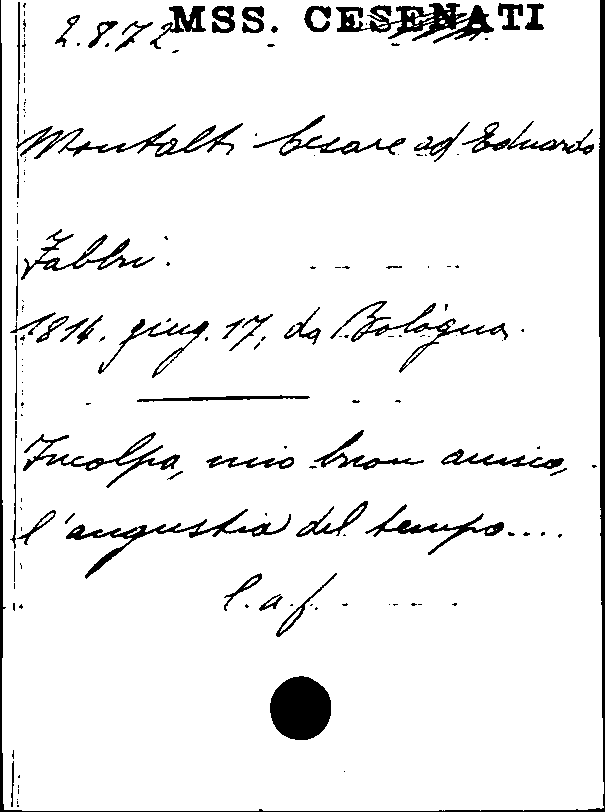 MSS. CESENATI
2.8.72.
Montalti Cesare ad Eduardo
Fabbri.
1814. giug. 17, da Bologna.
Incolpa, mio buon amico,
l'angustia del tempo....
l.a.f.